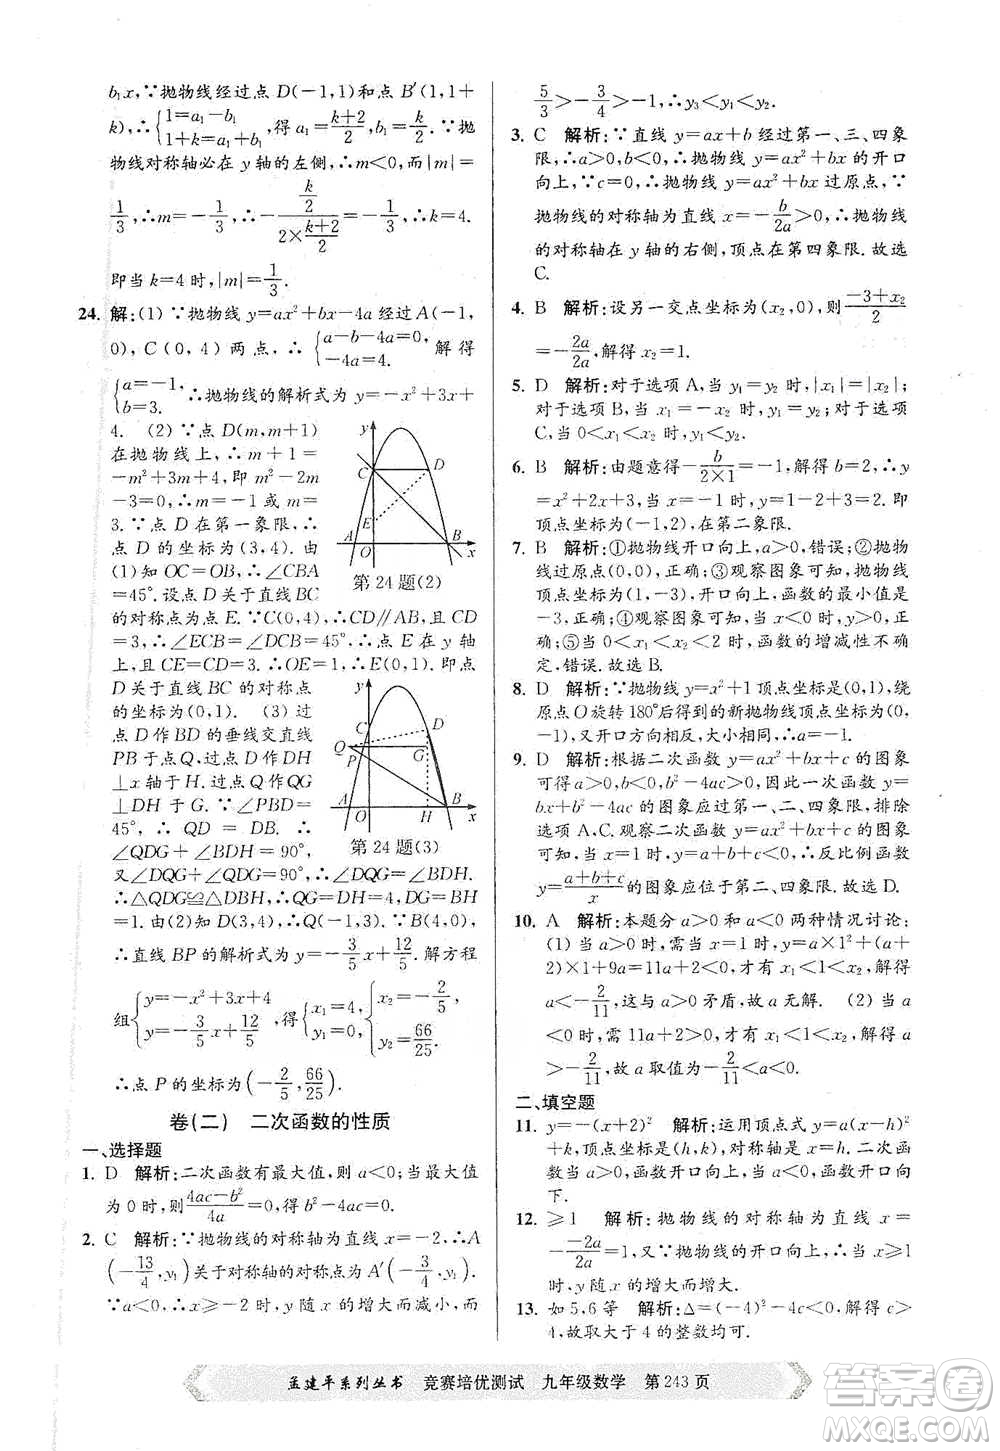 b₁x,∵抛物线经过点D(-1,1)和点B′(1,1+
k),∴{1=a₁-b₁ 1+k=a₁+b₁,得a₁=(k+2)/2,b₁=k/2.∵抛
物线对称轴必在y轴的左侧,∴m<0,而|m|=
1/3,∴m=-1/3,∴-(k/2)/(2×(k+2)/2)=-1/3,∴k=4.
即当k=4时,|m|=1/3.
24. 解:(1)∵抛物线y=ax²+bx-4a经过A(-1,
0),C(0,4)两点,∴{a-b-4a=0, -4a=4. 解得
{a=-1, b=3. ∴抛物线的解析式为y=-x²+3x+
4. (2)∵点D(m,m+1)
在抛物线上,∴m+1=
-m²+3m+4,即m²-2m
-3=0,∴m=-1或m=
3.∵点D在第一象限,∴
点D的坐标为(3,4).由
(1)知OC=OB,∴∠CBA
=45°.设点D关于直线BC
的对称点为点E.∵C(0,4),∴CD∥AB,且CD
=3,∴∠ECB=∠DCB=45°,∴点E在y轴
上,且CE=CD=3.∴OE=1,∴E(0,1).即点
D关于直线BC的对称点
的坐标为(0,1). (3)过
点D作BD的垂线交直线
PB于点Q,过点D作DH
⊥x轴于H.过点Q作QG
⊥DH于G.∵∠PBD=
45°,∴QD=DB.∴
∠QDG+∠BDH=90°,
又∠DQG+∠QDG=90°,∴∠DQG=∠BDH.
∴△QDG≌△DBH,∴QG=DH=4,DG=BH
=1.由(2)知D(3,4),∴H(3,0),∴Q(-1,3).
∵B(4,0),∴直线BP的解析式为y=-3/5x+12/5.解方程
组{y=-x²+3x+4 y=-3/5x+12/5,得{x₁=4, y₁=0,{x₂=-2/5, y₂=66/25.
∴点P的坐标为(-2/5,66/25).
y
C
D
E
A
O
B
x
第24题(2)
y
C
D
Q
P
G
A
O
H
B
x
第24题(3)
卷(二) 二次函数的性质
一、选择题
1. D 解析:二次函数有最大值,则a<0;最大值
为0时,则(4ac-b²)/4a=0,得b²-4ac=0.
2. C 解析:∵抛物线的对称轴为直线x=-2,∴A
(-13/4,y₁)关于对称轴的对称点为A′(-3/4,y₁).
∵a<0,∴x≥-2时,y随x的增大而减小,∵
5/3>-3/4>-1,∴y₃<y₁<y₂.
3. C 解析:∵直线y=ax+b经过第一、三、四象
限,∴a>0,b<0,∴抛物线y=ax²+bx的开口
向上,∵c=0,∴抛物线y=ax²+bx过原点,∵
抛物线的对称轴为直线x=-b/2a>0,∴抛物线
的对称轴在y轴的右侧,顶点在第四象限.故选
C.
4. B 解析:设另一交点坐标为(x₂,0),则(-3+x₂)/2
=-2a/2a,解得x₂=1.
5. D 解析:对于选项A,当y₁=y₂时,|x₁|=|x₂|;
对于选项B,当x₁=-x₂时,y₁=y₂;对于选项
C,当0<x₁<x₂时,y₁<y₂.
6. B 解析:由题意得-b/(2×1)=-1,解得b=2,∴y
=x²+2x+3,∴当x=-1时,y=1-2+3=2.即
顶点坐标为(-1,2),在第二象限.
7. B 解析:①抛物线开口向上,a>0,错误;②抛物
线过原点(0,0),正确;③观察图象可知,抛物线
的顶点为(2,-3),开口向上,函数的最小值是
-3,正确;④观察图象可知,当x<0时,y>0,正
确;⑤当0<x₁<x₂<2时,函数的增减性不确
定,错误.故选B.
8. D 解析:∵抛物线y=x²+1顶点坐标是(0,1),绕
原点O旋转180°后得到的新抛物线顶点坐标为(0,
-1),又开口方向相反,大小相同,∴a=-1.
9. D 解析:根据二次函数y=ax²+bx+c的图象
可得a>0,b<0,b²-4ac>0,因此一次函数y=
bx+b²-4ac的图象应过第一、二、四象限,排除
选项A、C.观察二次函数y=ax²+bx+c的图象
可知,当x=1时,y=a+b+c<0,∴反比例函数
y=(a+b+c)/x的图象应位于第二、四象限.故选D.
10. A 解析:本题分a>0和a<0两种情况讨论:
(1)当a>0时,需当x=1时,y=a×1²+(a+
2)×1+9a=11a+2<0,才有x₁<1<x₂,解得
a<-2/11,与a>0矛盾,故a无解. (2)当a
<0时,需11a+2>0,才有x₁<1<x₂,解得a
>-2/11,故a取值为-2/11<a<0.
二、填空题
11. y=-(x+2)² 解析:抛物线y=a(x-h)²
+k,顶点坐标为(h,k),对称轴为x=h.二次函
数当a>0时,函数开口向上,当a<0时开口向
下.
12. ≥1 解析:抛物线的对称轴为直线x=
-(-2a)/2a=1,又∵抛物线的开口向上,∴当x≥1
时,y随x的增大而增大.
13. 如5,6等 解析:Δ=(-4)²-4c<0,解得c>
4,故取大于4的整数均可.
孟建平系列丛书 竞赛培优测试 九年级数学 第243页
答案圈
MXQE.COM